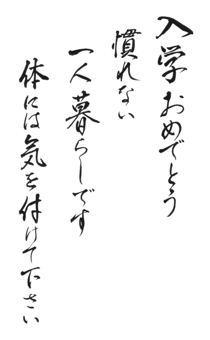 入学おめでとう
慣れない
一人暮らしです
体には気を付けて下さい